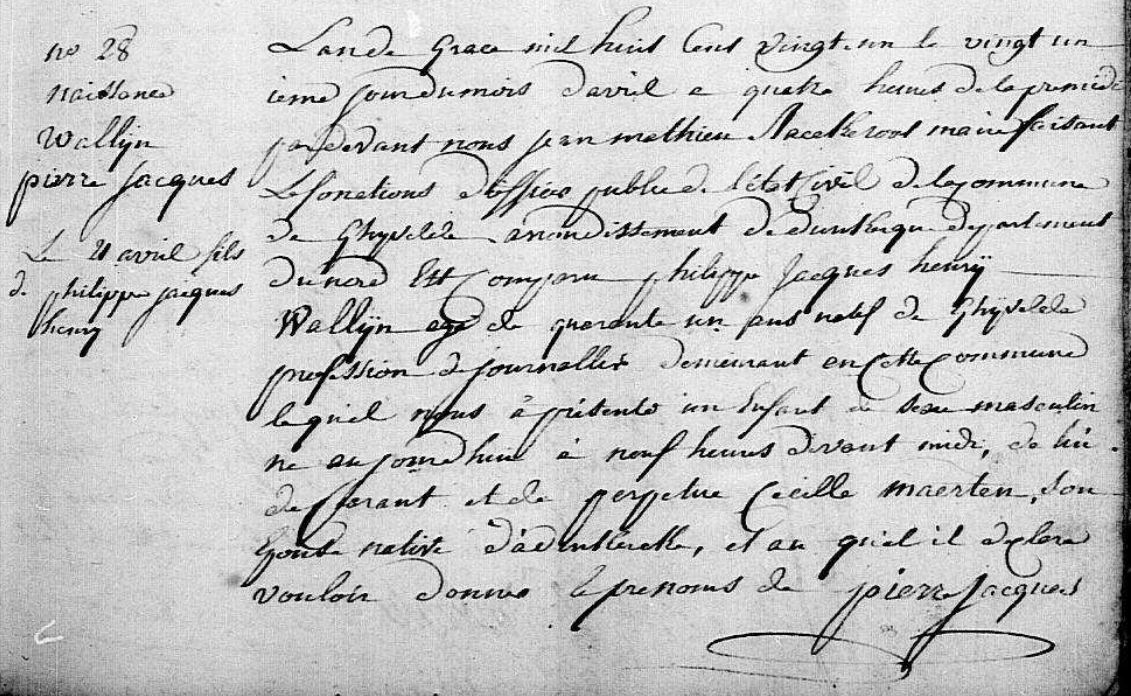 no 28
naissance
Wallijn
pierre Jacques
Le 21 avril fils
de philippe jacques
henry
Lan de Grace mil huit Cent vingt un le vingt un
ieme jour du mois d'avril a quatre heures de la
par devant nous jean mathieu maire faisant
Les fonctions d'officier public de l'état Civil de la commune
de Ghyvelde arrondissement de dunkerque departement
du nord Est Comparu philippe Jacques henrÿ
Wallijn agé de quarante un ans natif de Ghyvelde
profession de journallier demeurant en Cette Commune
lequel nous à présenté un Enfant de sexe masculin
né aujourdhui à neuf heures devant midi, de lui
declarant et de perpetue Cecille maerten, son
Epouse native d'adinkerke, et au quel il declare
vouloir donner le prenoms de pierre Jacques